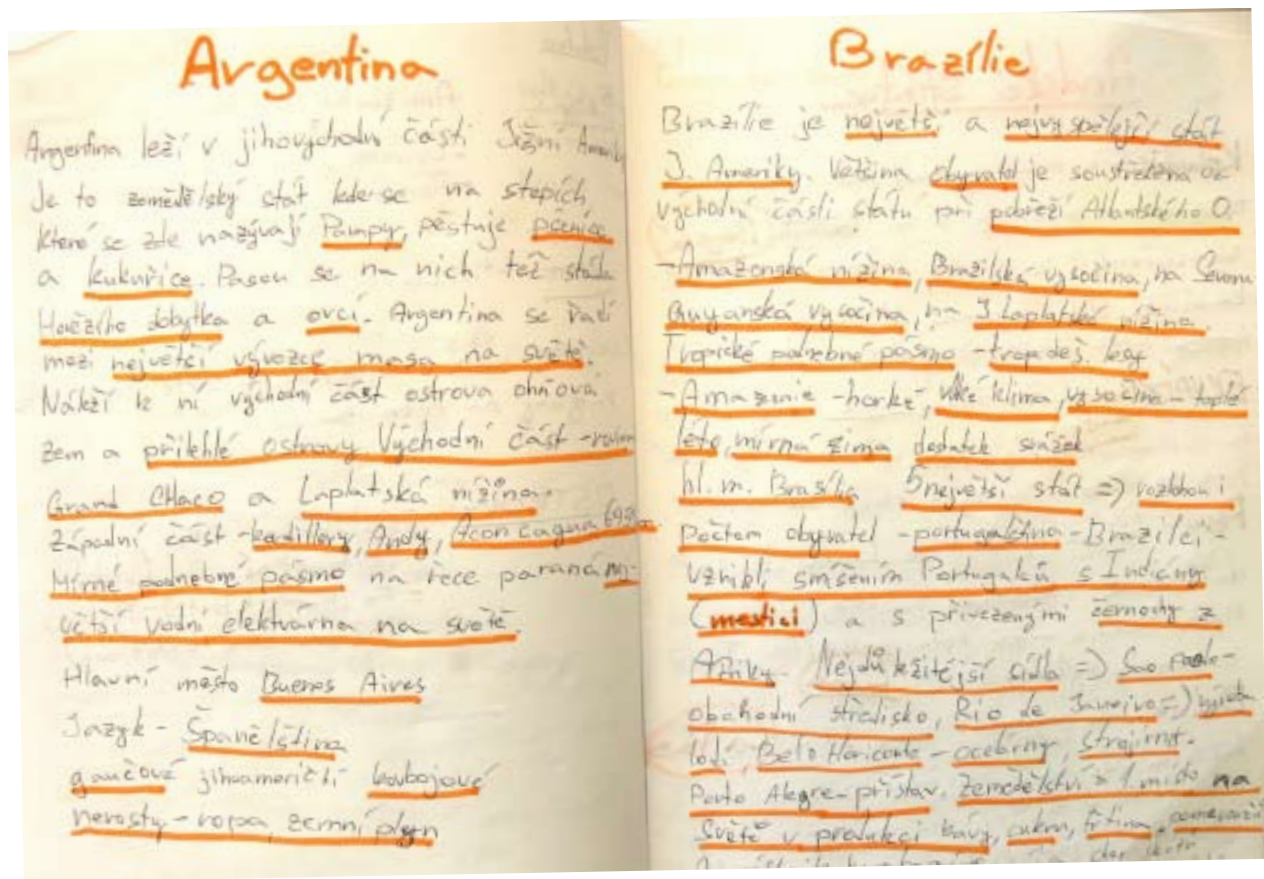 Argentina
Argentina leží v jihovýchodní části Jižní Ameriky
Je to zemědělský stát kde se na stepích
které se zde nazývají Pampy, pěstuje pšenice
a kukuřice. Pasou se na nich též stáda
Hovězího dobytka a ovcí. Argentina se řadí
mezi největčí vývozce masa na světě.
Náleží k ní východní část ostrova ohňová
zem a přilehlé ostrovy Východní část -
Grand CHaco a Laplatská nížina.
Západní část - kordillery, Andy, Acon cagua
Mírné podnebné pásmo na řece paraná
větší vodní elektrárna na světě.
Hlavní město Buenos Aires
Jazyk - Španělština
gaučové jihoameričtí kovbojové
nerosty - ropa, zemní plyn
Brazílie
Brazílie je největší a nejvyspělejší stát
J. Ameriky. Většina obyvatel je soustředěna ve
východní části státu při pobřeží Atlantského O.
- Amazonská nížina, Brazilská vysočina, na Severu
Guyanská vysočina, na J Laplatská nížina.
Tropické podnebné pásmo - trop. deš. lesy
- Amazonie - horké, vlhké klima, vysočina - teplé
léto, mírná zima dostatek srážek
hl. m. Brasília 5největší stát => rozlohou i
Počtem obyvatel - portugalština - Brazilci -
vznikli smíšením Portugalců s Indiány
(mestici) a s přivezenými černochy z
Afriky. Nejdůležitější sídla => Sao Paolo -
obchodní středisko, Rio de Janeiro =>
lodí, Belo Horizonte - ocelárny, strojírnt.
Porto Alegre - přístav. Zemědělství > 1 místo na
Světě v produkci kávy, cukru, třtina, pomerančů